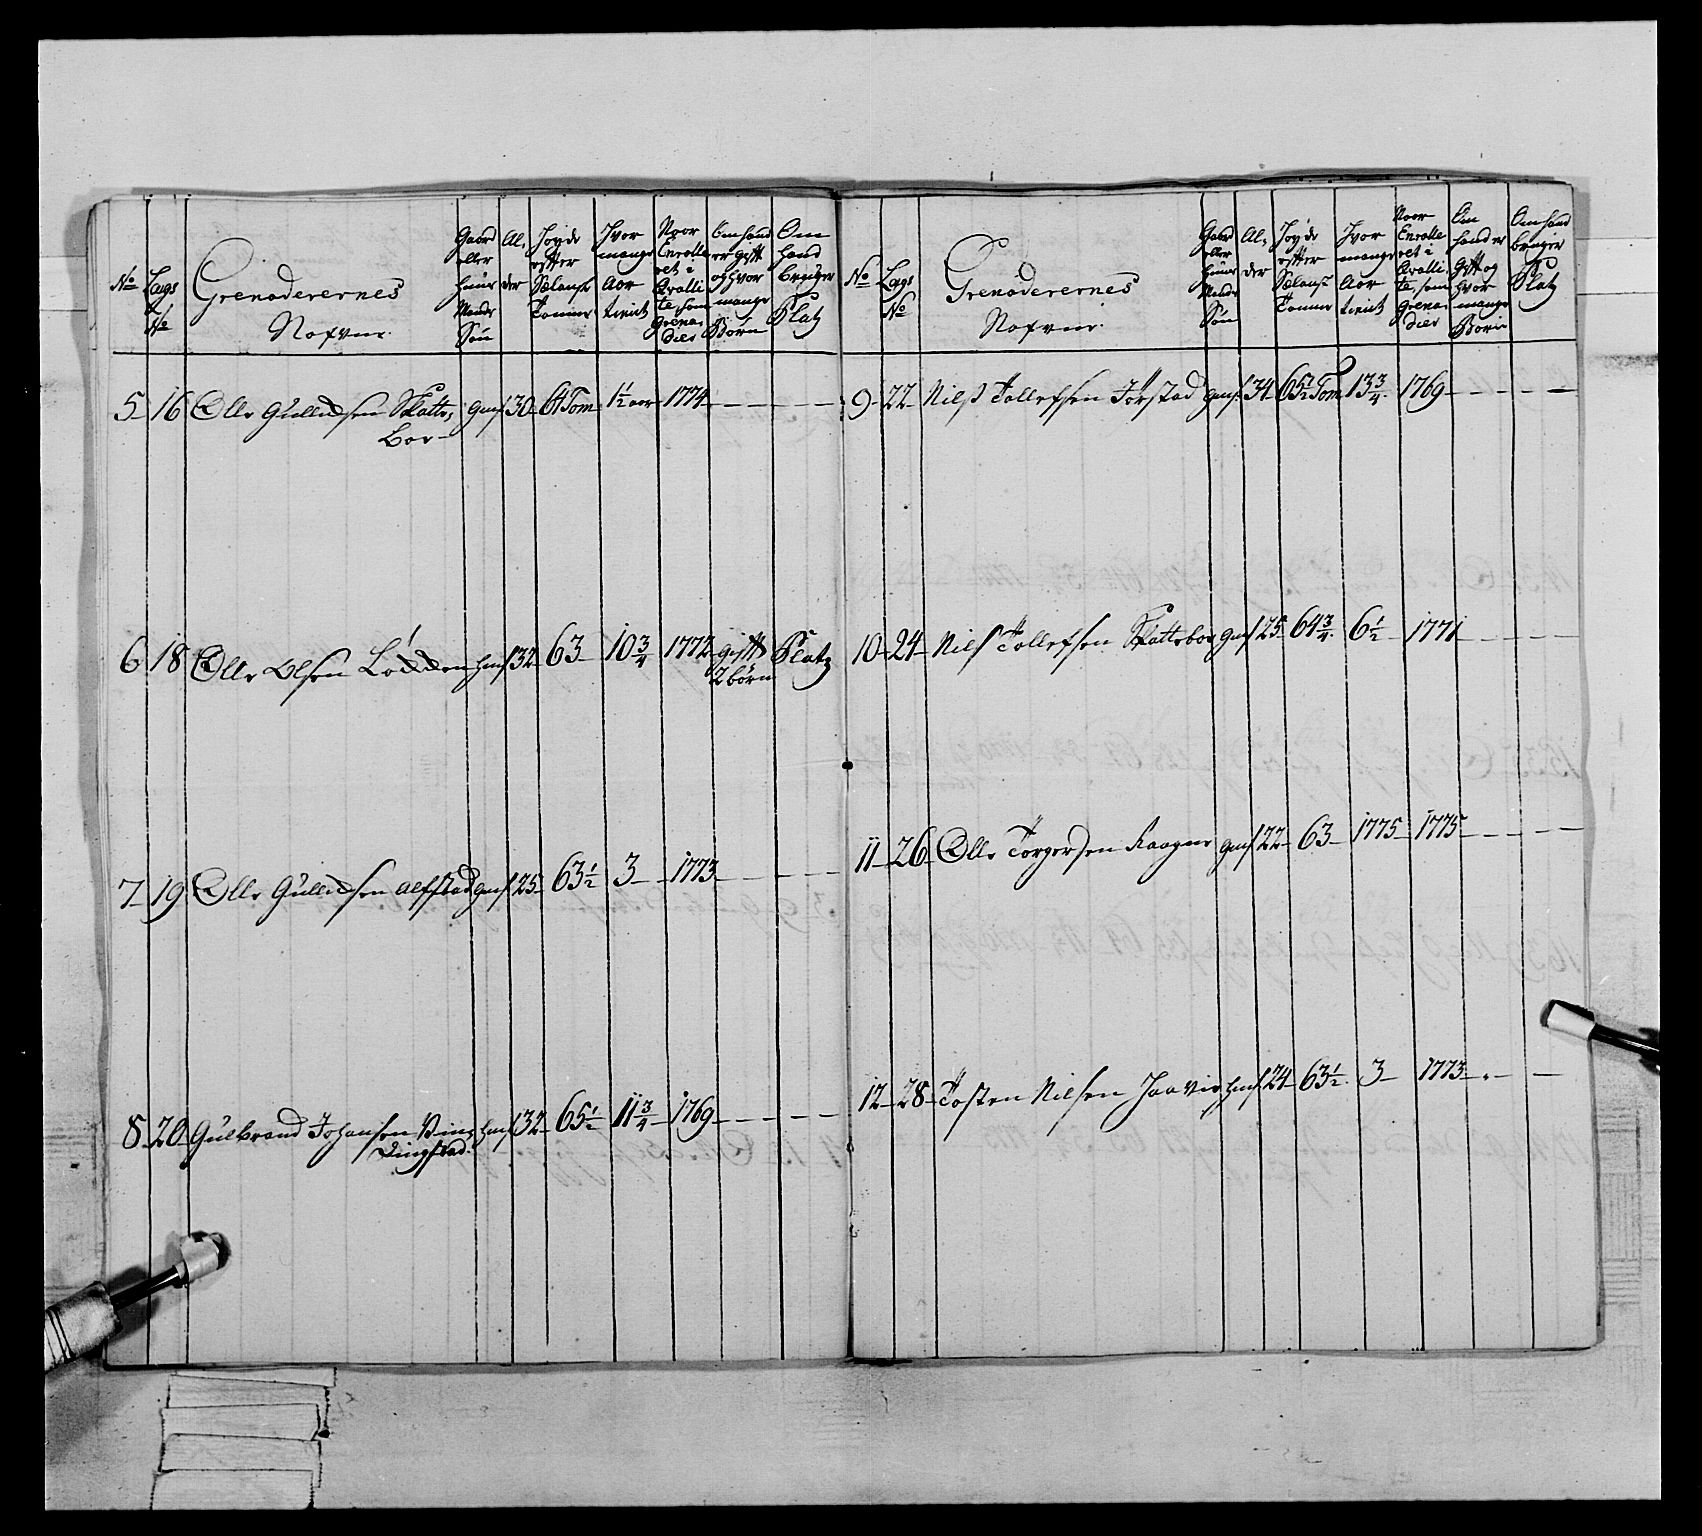 No
Lags No
Grenaderernes Nafvne.
Gaard eller Huus Mands Søn
Al, der
Høyde efter Sælansk Tommer
Hvor mange Aar tient
Naar Enrolle ret i Qvalli te, som Grena, deer
Om hand er gift og hvor mange Børn
Om hand bruger Platz
5 16 Olle Gulledsen Skatte, gms 30 64 Tom 1½ aar 1774 — — —
Boe
6 18 Olle Olsen Lødden hms 32 63 10¾ 1772 gift Platz
2 børn
7 19 Olle Gulledsen Alfstad gms 25 63½ 3 1773 — — —
8 20 Gulbrand Johansen Ving hms 32 65½ 11¾ 1769 — — —
Dingstad
No
Lags No
Grenaderernes Nafvne.
Gaard eller Huus Mands Søn
Al, der
Høyde efter Sælansk Tommer
Hvor mange Aar tient
Naar Enrolle ret i Qvalli te, som Grena, deer
Om hand er Gift og hvor mange Børn
Om hand bruger Platz
9 22 Nils Tollefsen Jørstad gms 34 65½ Tom 13¾ 1769 — — —
10 24 Nils Tollefsen Skatteboe gms 25 64¾ 6½ 1771 — — —
11 26 Olle Torgersen Kaagne gms 22 63 1775 1775 — — —
12 28 Tosten Nilsen Haavie hms 24 63½ 3 1773 — —